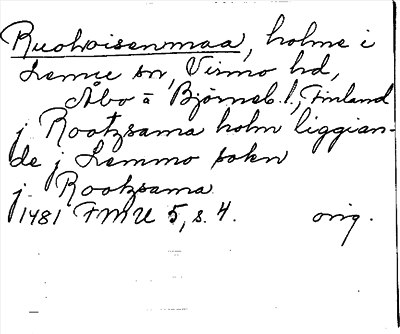 Ruohoisenmaa, holme i
Lemu sn, Virmo hd,
Åbo å Björneb. l., Finland
j Rootzsama holm liggian-
de j Lemmo sokn
j Rootzsama
1481 FMU 5, s. 4. orig.